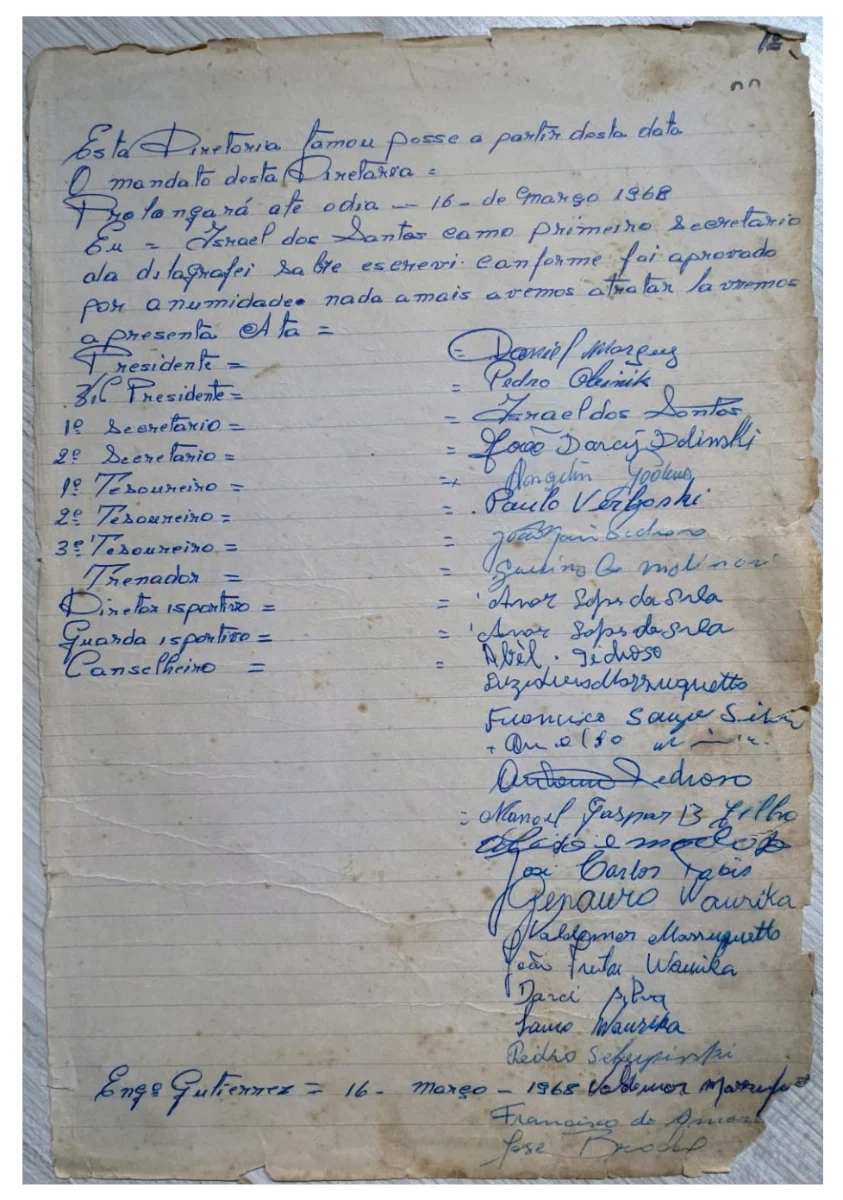 12
Esta Diretoria tamou posse a partir desta data
O mandato desta Diretaria =
Prolongará até odia — 16 - de março 1968
Eu = Israel dos Santos camo primeiro Secretario
ala dilagrafei sabre escrevi. canforme fai aprovado
por anumidade. nada amais avemos atratar lavremos
apresenta Ata =
Presidente = = Daniel Marques
Presidente = = Pedro Oleinik
1º Secretario = = Israel dos Santos
2º Secretario = = João Darcy
1º Tesoureiro = =
2º Tesoureiro = = Paulo
3º Tesoureiro = =
Trenador = =
Diretor isportivo = = Anor Lopes da Silva
Guarda isportivo = = Anor Lopes da Silva
Canselheiro = = Abel. Pedroso
Marruquetto
Francisco Silva
Antonio Pedroso
= Manoel Gaspar B Filho
José Carlos
Genauro Waurika
Valdemor Marruquetto
João Waurika
Darci Silva
Lauro Waurika
Pedro
Engº Gutierrez = 16 - março - 1968 Valdemor
Francisco de
Jose